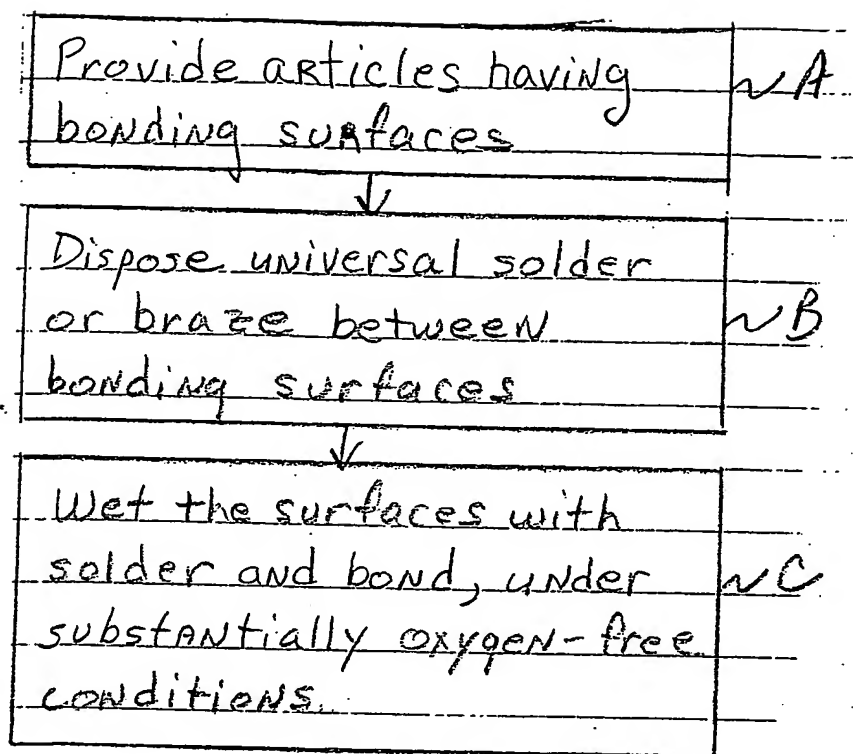 Provide articles having ~A
bonding surfaces
Dispose universal solder
or braze between ~B
bonding surfaces
Wet the surfaces with
solder and bond, under ~C
substantially oxygen-free
conditions.